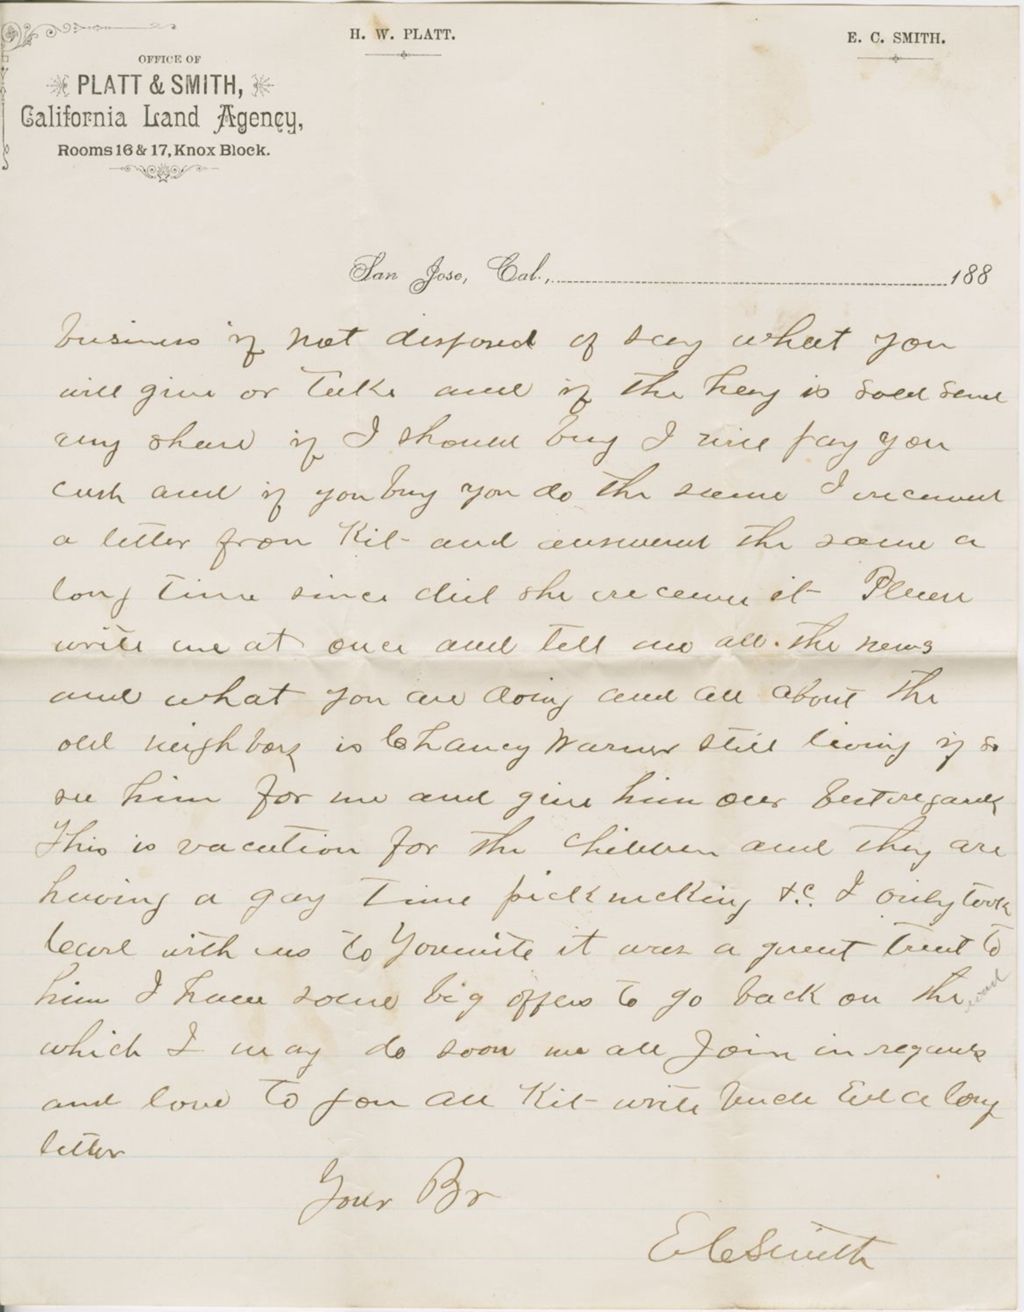 H. W. PLATT.
E. C. SMITH.
OFFICE OF
PLATT & SMITH,
California Land Agency,
Rooms 16 & 17, Knox Block.
San Jose, Cal., 188
business if not disposed of say what you
will give or take and if the hay is sold send
my share if I should buy I will pay you
cash and if you buy you do the same I received
a letter from Kit and answered the same a
long time since did she receive it Please
write me at once and tell me all the news
and what you are doing and all about the
old neighbors is Chancy Warner still living if so
see him for me and give him our best regards
This is vacation for the children and they are
having a gay time pick nicking &c. I only took
Carl with us to Yosemite it was a great treat to
him I have some big offers to go back on the road
which I may do soon we all Join in regards
and love to you all Kit write Uncle Ed a long
letter
Your Br
E C Smith